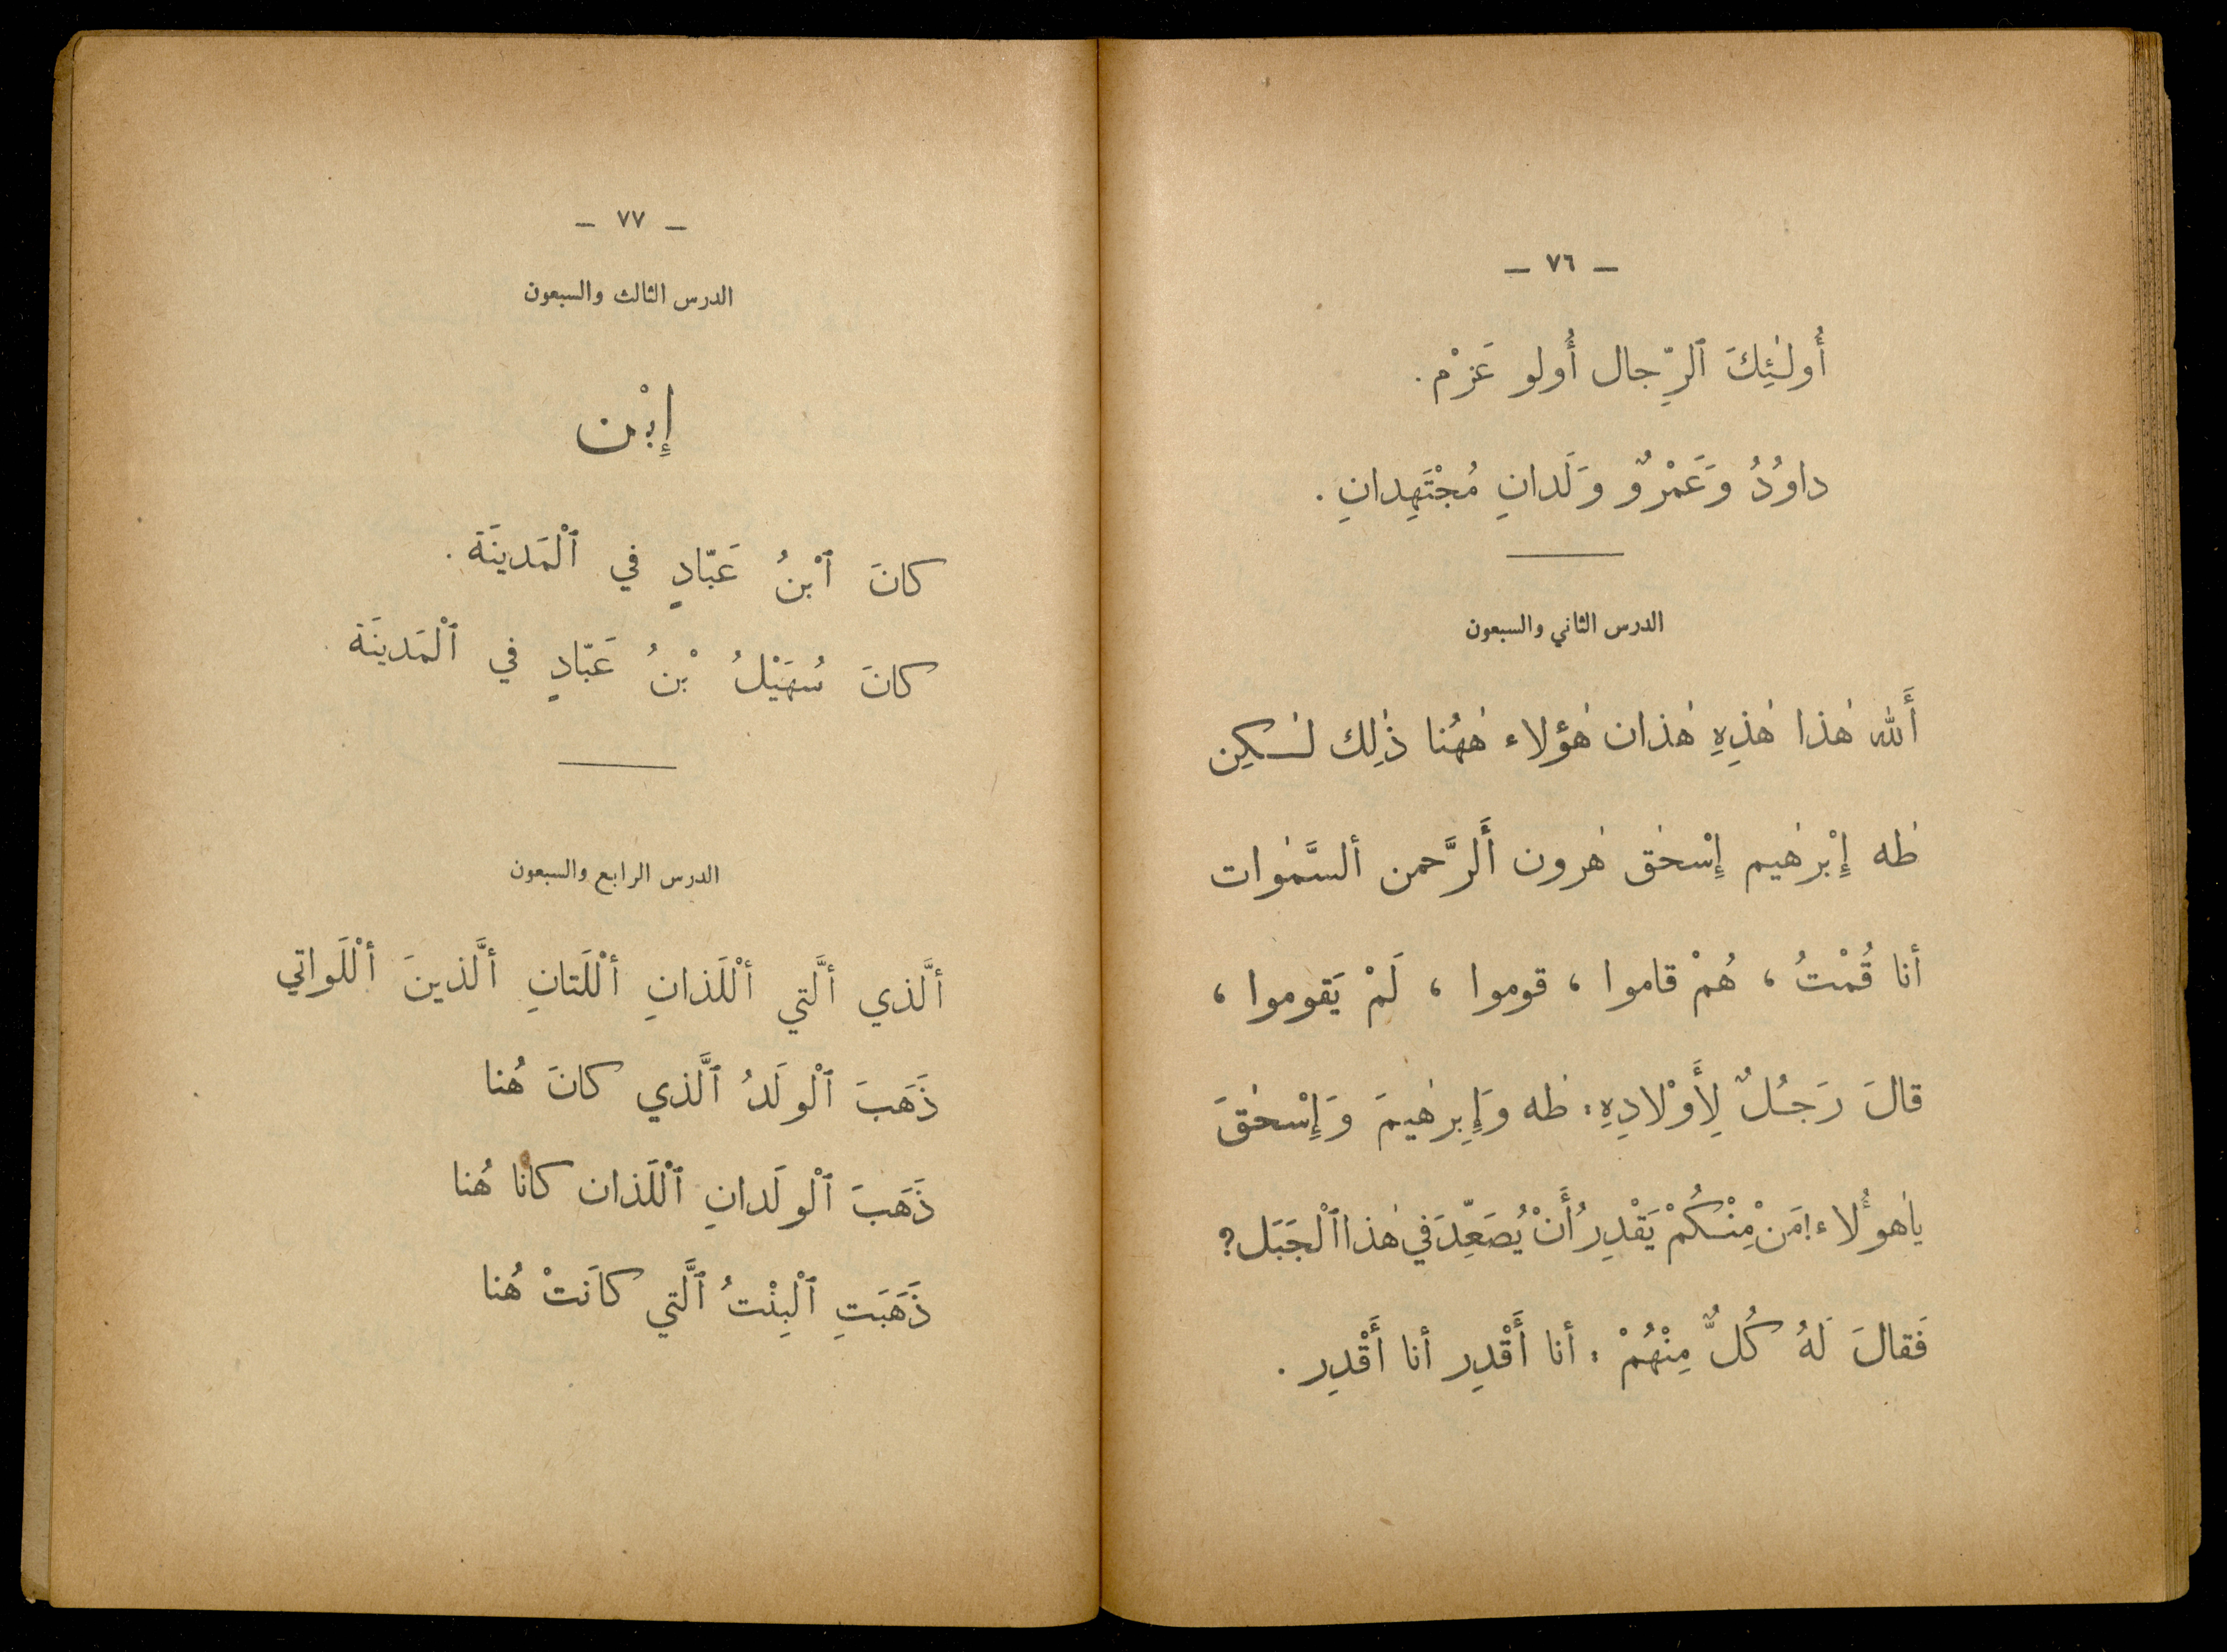 — ٧٦ —
أُولٰئِكَ ٱلرِّجال أُولو عَزْم.
داوُدُ وَعَمْرٌو وَلَدانِ مُجْتَهِدانِ.
الدرس الثاني والسبعون
أَلله هٰذا هٰذِهِ هٰذان هٰؤلاء هٰهُنا ذٰلِك لٰكِن
طٰه إِبْرٰهيم إِسْحٰق هٰرون أَلرَّحمن ألسَّمٰوات
أنا قُمْتُ ، هُمْ قاموا ، قوموا ، لَمْ يَقوموا ،
قالَ رَجُلٌ لِأَوْلادِهِ: طٰه وَإِبرٰهيمَ وَإِسْحٰقَ
ياهٰؤُلاء! مَنْ مِنْكُمْ يَقْدِرُ أَنْ يُصَعِّدَ في هٰذا ٱلْجَبَل؟
فَقالَ لَهُ كُلٌّ مِنْهُمْ: أنا أَقْدِر أنا أَقْدِر.
— ٧٧ —
الدرس الثالث والسبعون
إِبْن
كانَ ٱبْنُ عَبّادٍ في ٱلْمَدينَة.
كانَ سُهَيْلُ بْنُ عَبّادٍ في ٱلْمَدينَة.
الدرس الرابع والسبعون
ألَّذي ألَّتي ألْلَذانِ ألْلَتانِ ألَّذينَ ألْلَواتي
ذَهَبَ ٱلْولَدُ ٱلَّذي كانَ هُنا
ذَهَبَ ٱلْولَدانِ ٱلْلَذان كانا هُنا
ذَهَبَتِ ٱلْبِنْتُ ٱلَّتي كانَتْ هُنا